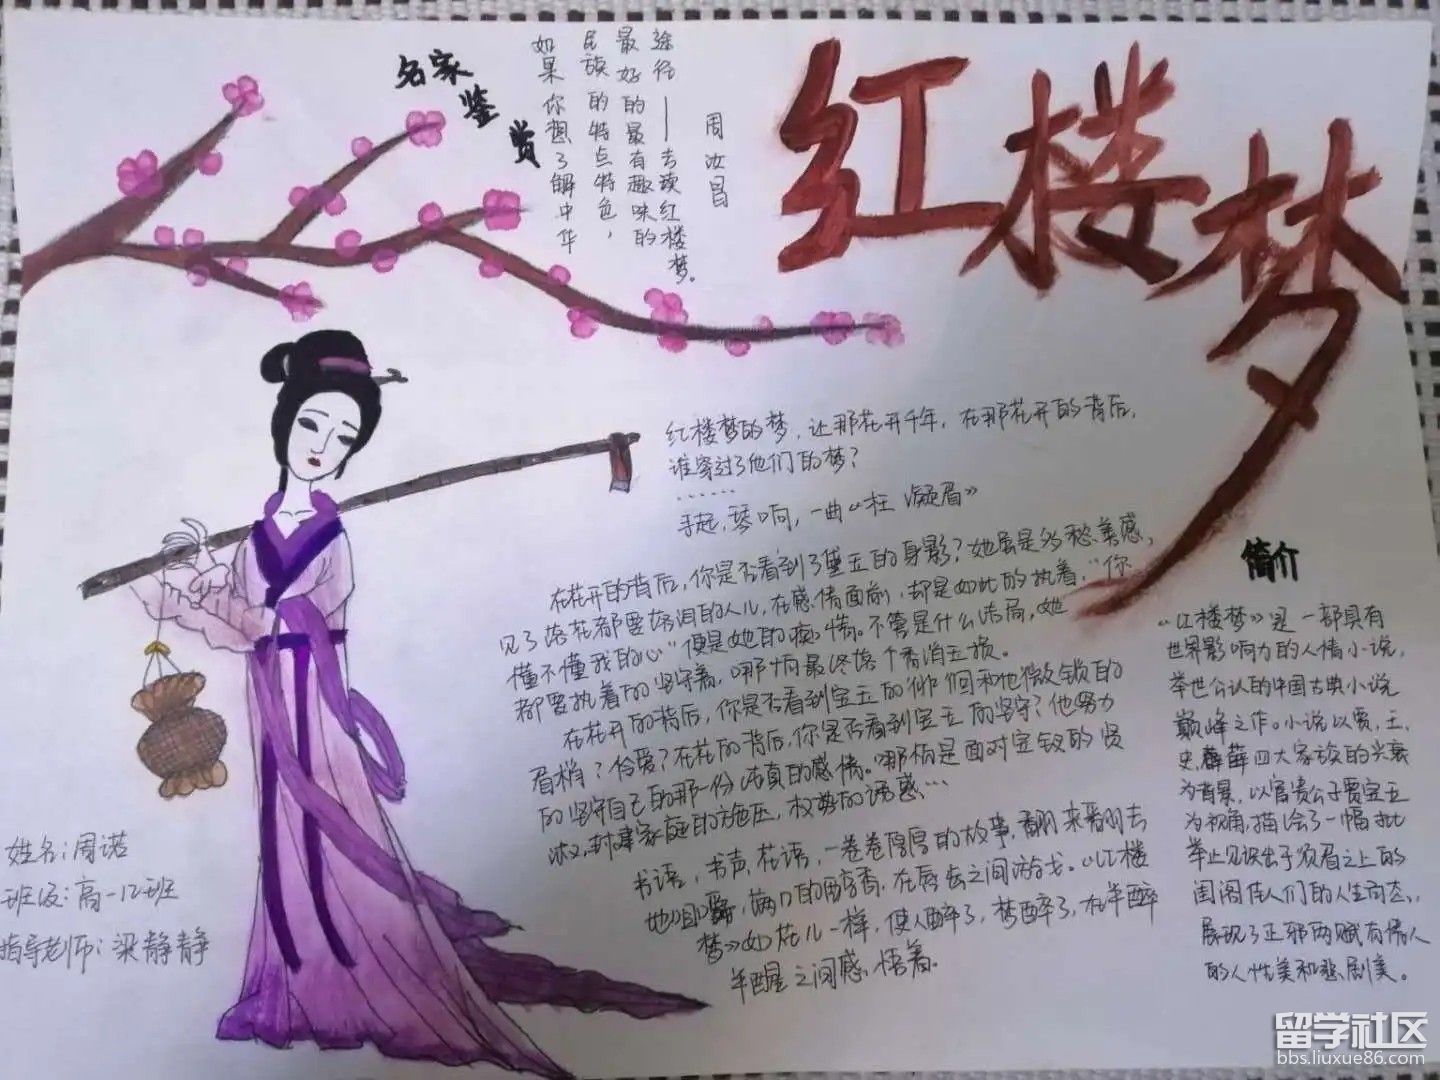 红楼梦
名家鉴赏
如果你想了解中华
民族的特点特色，
最好的最有趣味的
途径——去读红楼梦。
周汝昌
红楼梦的梦，让那花开千年，在那花开的背后，
谁穿过了他们的梦？
……
手起，琴响，一曲《枉凝眉》
在花开的背后，你是否看到了黛玉的身影？她虽是多愁善感，
见了落花都要落泪的人儿，在感情面前，却是如此的执着，“你
懂不懂我的心”便是她的痴情。不管是什么结局，她
都要执着的坚守着，哪怕最终落个香消玉损。
在花开的背后，你是否看到宝玉的徘徊和他微锁的
眉梢？怜爱？在花的背后，你是否看到宝玉的坚守？他努力
的坚守自己的那一份纯真的感情。哪怕是面对宝钗的贤
淑，封建家庭的施压，权势的诱惑…
书语，书声，花语，一卷卷厚厚的故事，翻来翻去
地咀嚼，满口的醇香，在唇齿之间游弋。《红楼
梦》如花儿一样，使人醉了，梦醉了，在半醉
半醒之间感悟着。
简介
《红楼梦》是一部具有
世界影响力的人情小说，
举世公认的中国古典小说
巅峰之作。小说以贾、王、
史、薛四大家族的兴衰
为背景，以富贵公子贾宝玉
为视角，描绘了一幅批
举止见识出于须眉之上的
闺阁佳人们的人生百态，
展现了正邪两赋有情人
的人性美和悲剧美。
姓名：周诺
班级：高一12班
指导老师：梁静静
留学社区
bbs.liuxue86.com